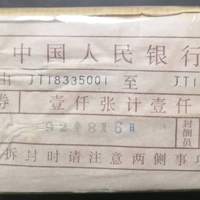 中国人民银行
出 JT18335001 至 JT1
券 壹仟张计壹仟
92 8 6日 封捆员
拆封时请注意两侧事项